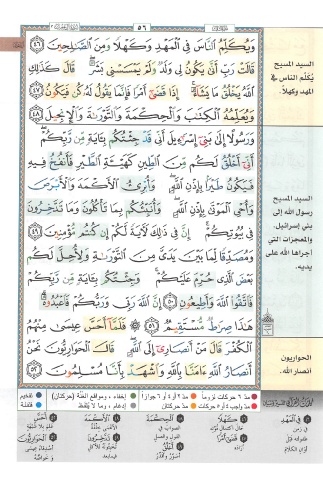 ٥٦
وَيُكَلِّمُ ٱلنَّاسَ فِى ٱلْمَهْدِ وَكَهْلًا وَمِنَ ٱلصَّٰلِحِينَ ٤٦
قَالَتْ رَبِّ أَنَّىٰ يَكُونُ لِى وَلَدٌ وَلَمْ يَمْسَسْنِى بَشَرٌ قَالَ كَذَٰلِكِ
ٱللَّهُ يَخْلُقُ مَا يَشَآءُ إِذَا قَضَىٰٓ أَمْرًا فَإِنَّمَا يَقُولُ لَهُۥ كُن فَيَكُونُ ٤٧
وَيُعَلِّمُهُ ٱلْكِتَٰبَ وَٱلْحِكْمَةَ وَٱلتَّوْرَىٰةَ وَٱلْإِنجِيلَ ٤٨
وَرَسُولًا إِلَىٰ بَنِىٓ إِسْرَٰٓءِيلَ أَنِّى قَدْ جِئْتُكُم بِـَٔايَةٍ مِّن رَّبِّكُمْ
أَنِّىٓ أَخْلُقُ لَكُم مِّنَ ٱلطِّينِ كَهَيْـَٔةِ ٱلطَّيْرِ فَأَنفُخُ فِيهِ
فَيَكُونُ طَيْرًۢا بِإِذْنِ ٱللَّهِ وَأُبْرِئُ ٱلْأَكْمَهَ وَٱلْأَبْرَصَ
وَأُحْىِ ٱلْمَوْتَىٰ بِإِذْنِ ٱللَّهِ وَأُنَبِّئُكُم بِمَا تَأْكُلُونَ وَمَا تَدَّخِرُونَ
فِى بُيُوتِكُمْ إِنَّ فِى ذَٰلِكَ لَـَٔايَةً لَّكُمْ إِن كُنتُم مُّؤْمِنِينَ ٤٩
وَمُصَدِّقًا لِّمَا بَيْنَ يَدَىَّ مِنَ ٱلتَّوْرَىٰةِ وَلِأُحِلَّ لَكُم
بَعْضَ ٱلَّذِى حُرِّمَ عَلَيْكُمْ وَجِئْتُكُم بِـَٔايَةٍ مِّن رَّبِّكُمْ
فَٱتَّقُوا۟ ٱللَّهَ وَأَطِيعُونِ ٥٠ إِنَّ ٱللَّهَ رَبِّى وَرَبُّكُمْ فَٱعْبُدُوهُ
هَٰذَا صِرَٰطٌ مُّسْتَقِيمٌ ٥١ فَلَمَّآ أَحَسَّ عِيسَىٰ مِنْهُمُ
ٱلْكُفْرَ قَالَ مَنْ أَنصَارِىٓ إِلَى ٱللَّهِ قَالَ ٱلْحَوَارِيُّونَ نَحْنُ
أَنصَارُ ٱللَّهِ ءَامَنَّا بِٱللَّهِ وَٱشْهَدْ بِأَنَّا مُسْلِمُونَ ٥٢
السيد المسيح
يُكلّم الناس في
المهد وكهلاً.
السيد المسيح
رسول الله إلى
بني إسرائيل.
والمعجزات التي
أجراها الله على
يديه.
الحواريون
أنصار الله.
مدّ ٦ حركات لزوماً
مدّ ٢ أو ٤ أو ٦ جوازاً
إخفاء، ومواقع الغنّة (حركتان)
تفخيم
مدّ واجب ٤ أو ٥ حركات
مدّ حركتان
إدغام، وما لا يُلفظ
قلقلة